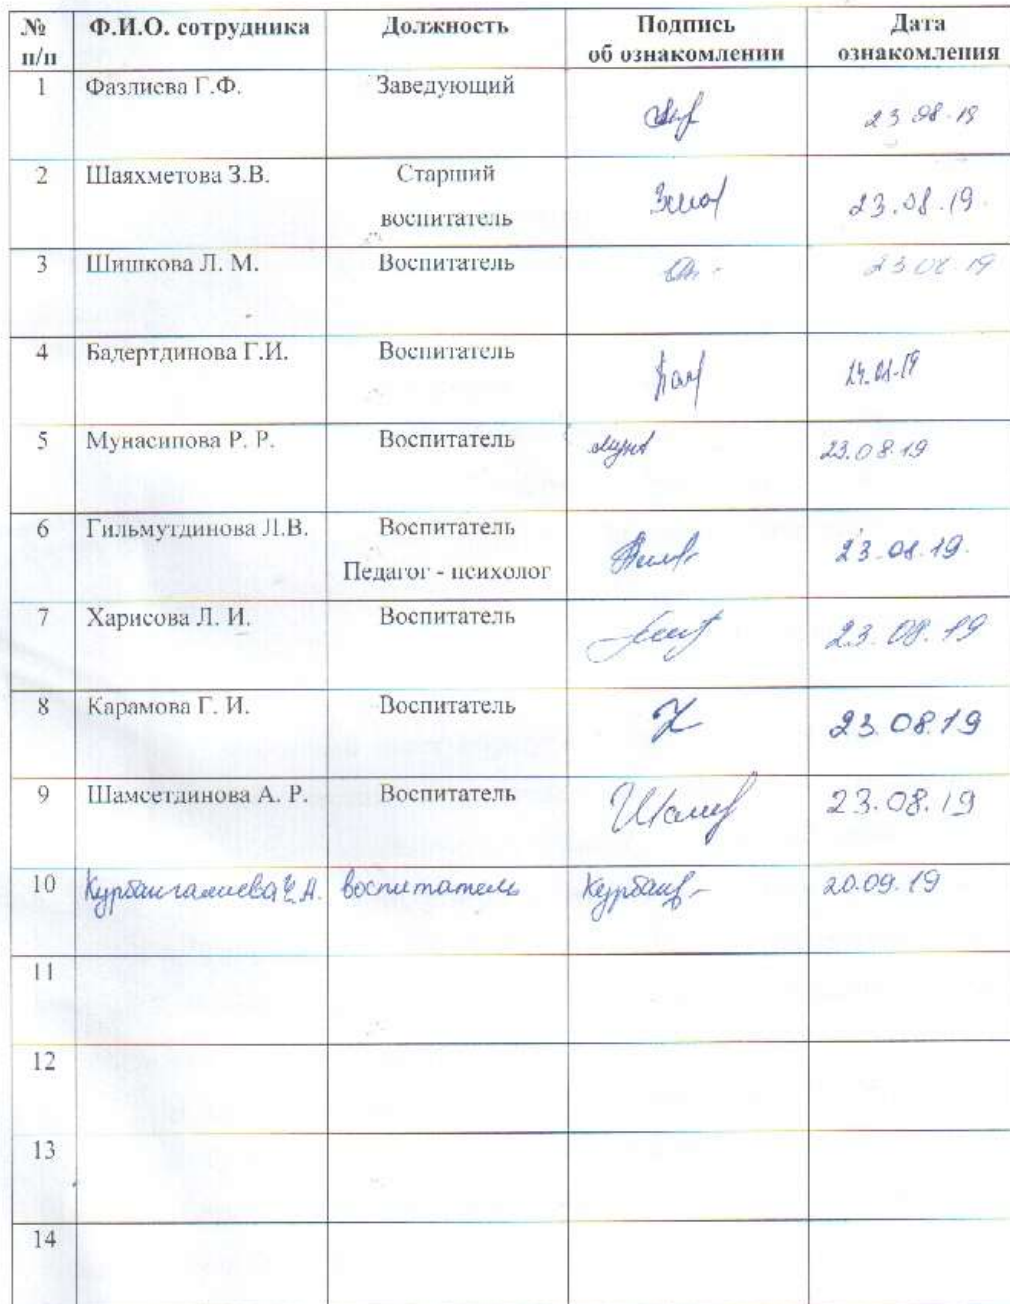 № Ф.И.О. сотрудника Должность Подпись Дата
п/п об ознакомлении ознакомления
1 Фазлиева Г.Ф. Заведующий
23.08.19
2 Шаяхметова З.В. Старший
воспитатель 23.08.19.
3 Шишкова Л. М. Воспитатель 23.08.19
4 Бадертдинова Г.И. Воспитатель
5 Мунасипова Р. Р. Воспитатель 23.08.19
6 Гильмутдинова Л.В. Воспитатель 23.08.19.
Педагог - психолог
7 Харисова Л. И. Воспитатель 23.08.19
8 Карамова Г. И. Воспитатель 23.08.19
9 Шамсетдинова А. Р. Воспитатель 23.08.19
10 Курбангалиева Ч.А. воспитатель 20.09.19
11
12
13
14